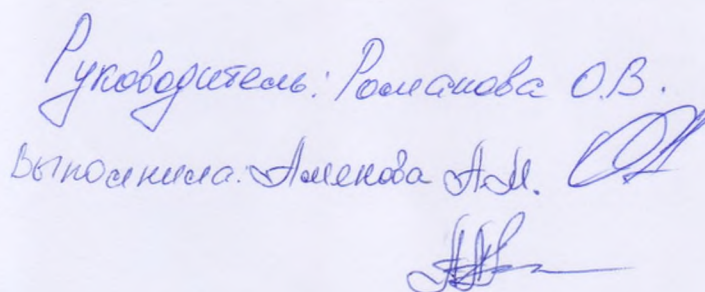 Руководитель: Романова О.В.
Выполнила: Аменова А.М.